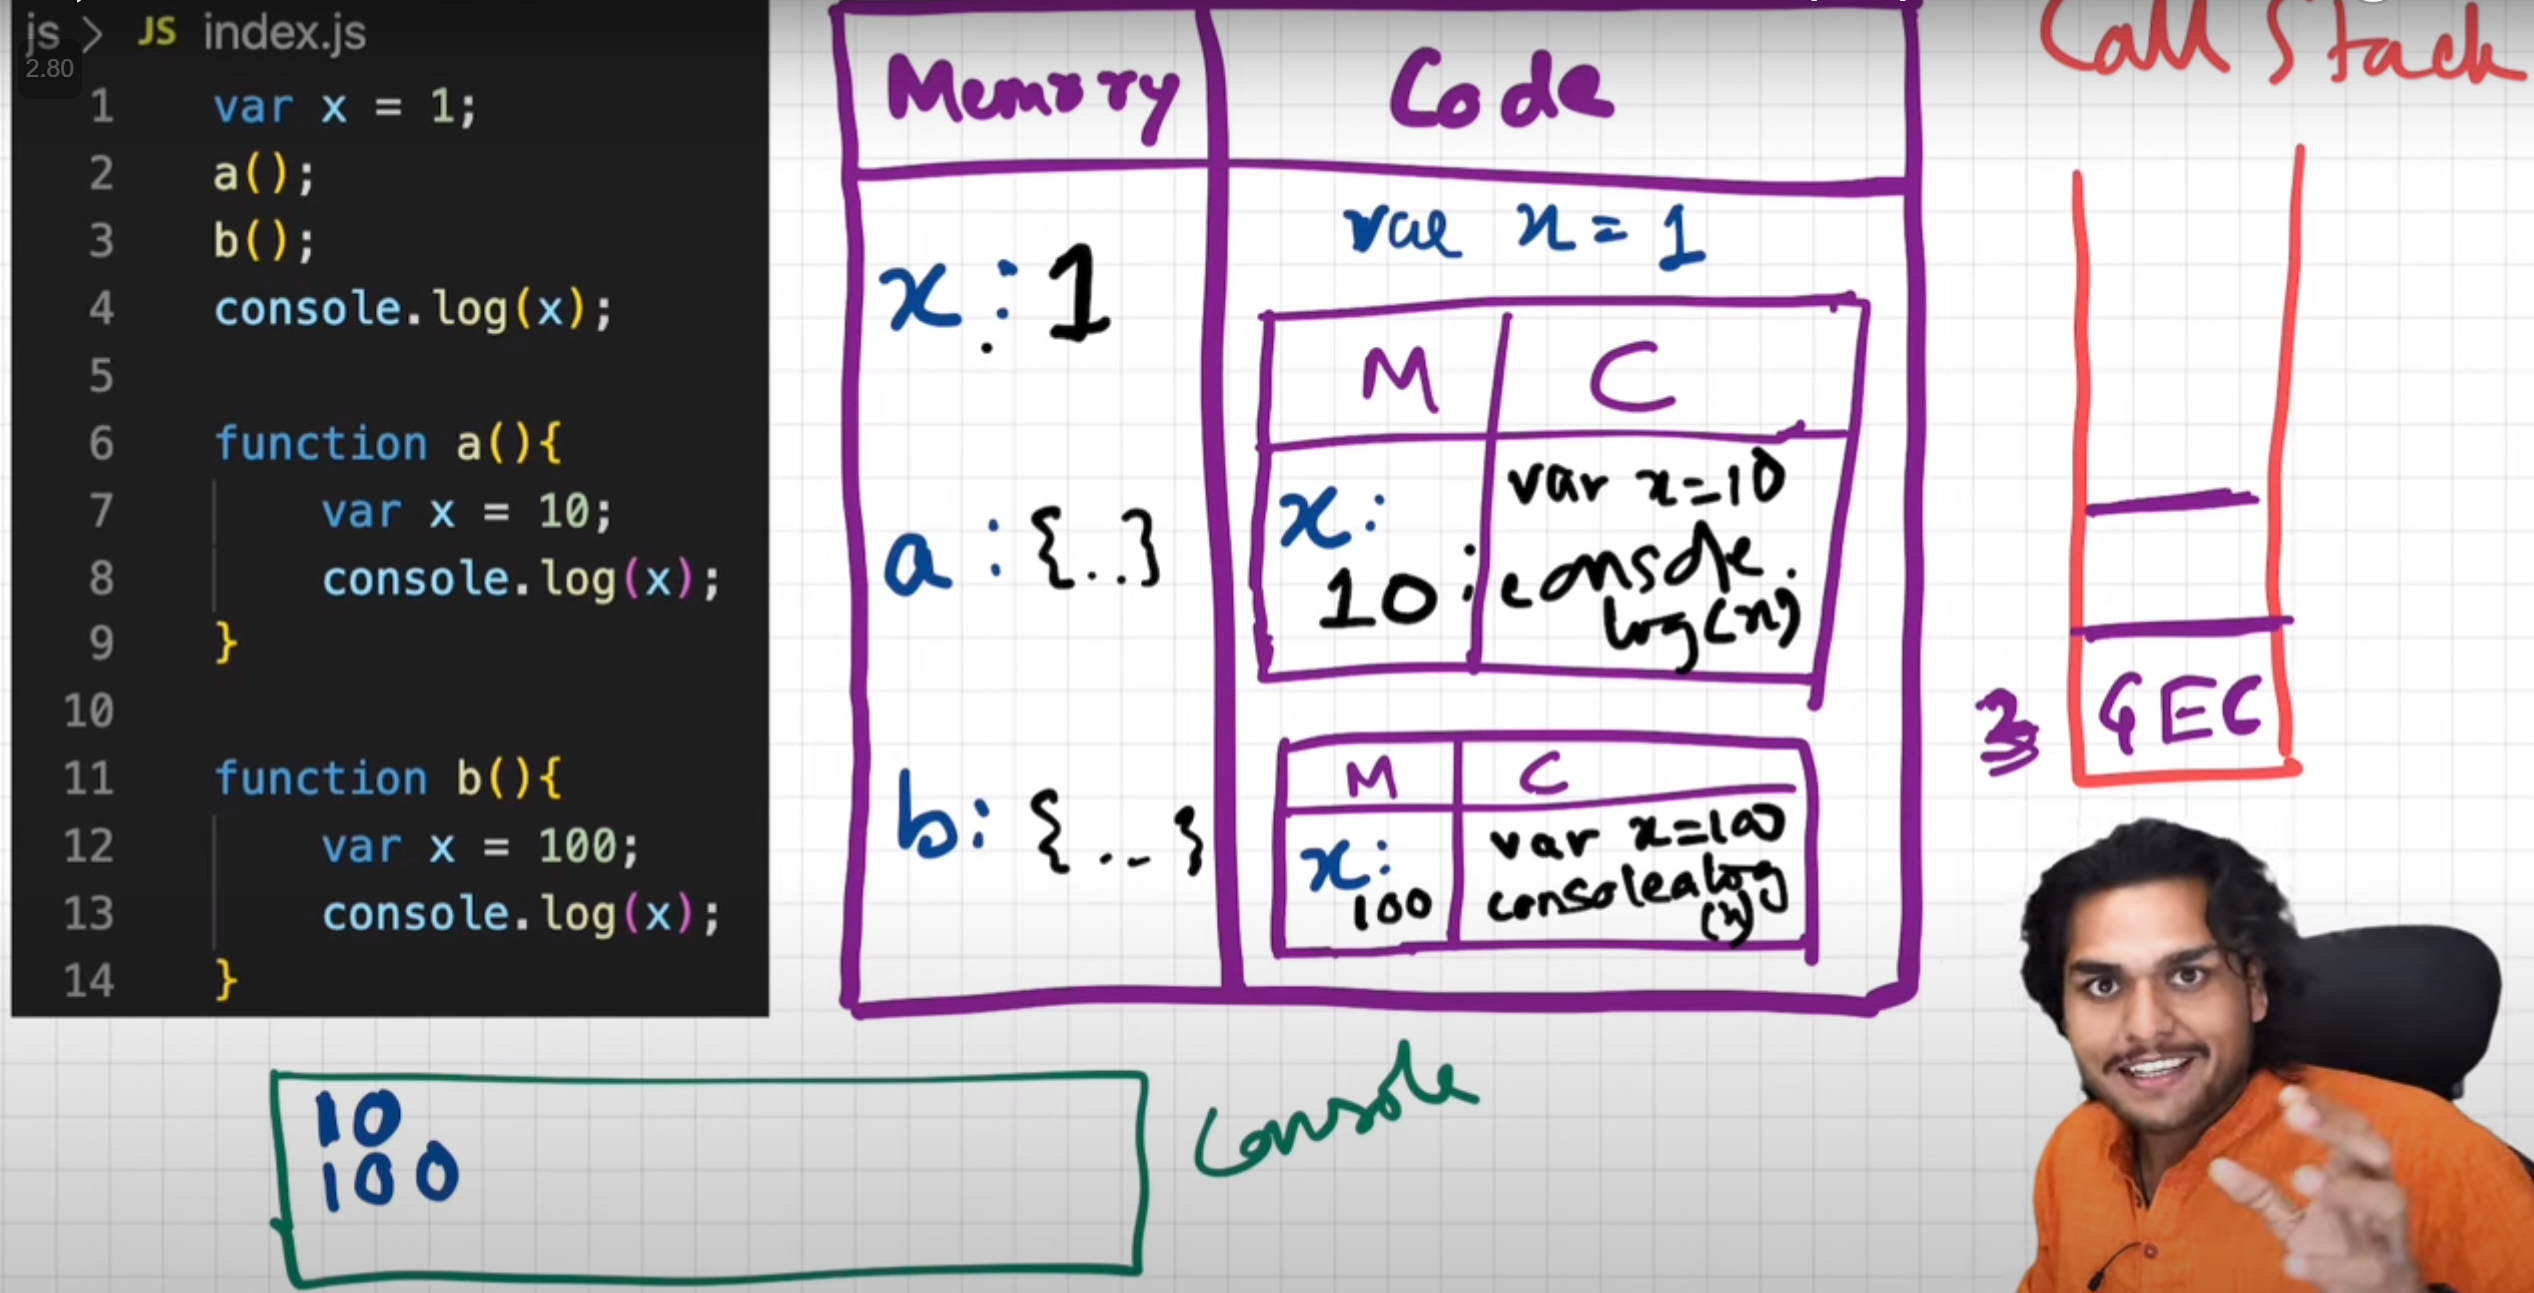 js > JS index.js
2.80
1 var x = 1;
2 a();
3 b();
4 console.log(x);
5
6 function a(){
7 var x = 10;
8 console.log(x);
9 }
10
11 function b(){
12 var x = 100;
13 console.log(x);
14 }
Memory Code
x : 1
a : {..}
b : {...}
var x = 1
M C
x:
10
var x=10
console.
log(x)
M C
x:
100
var x=100
console.log
(x)
Call Stack
GEC
10
100
Console